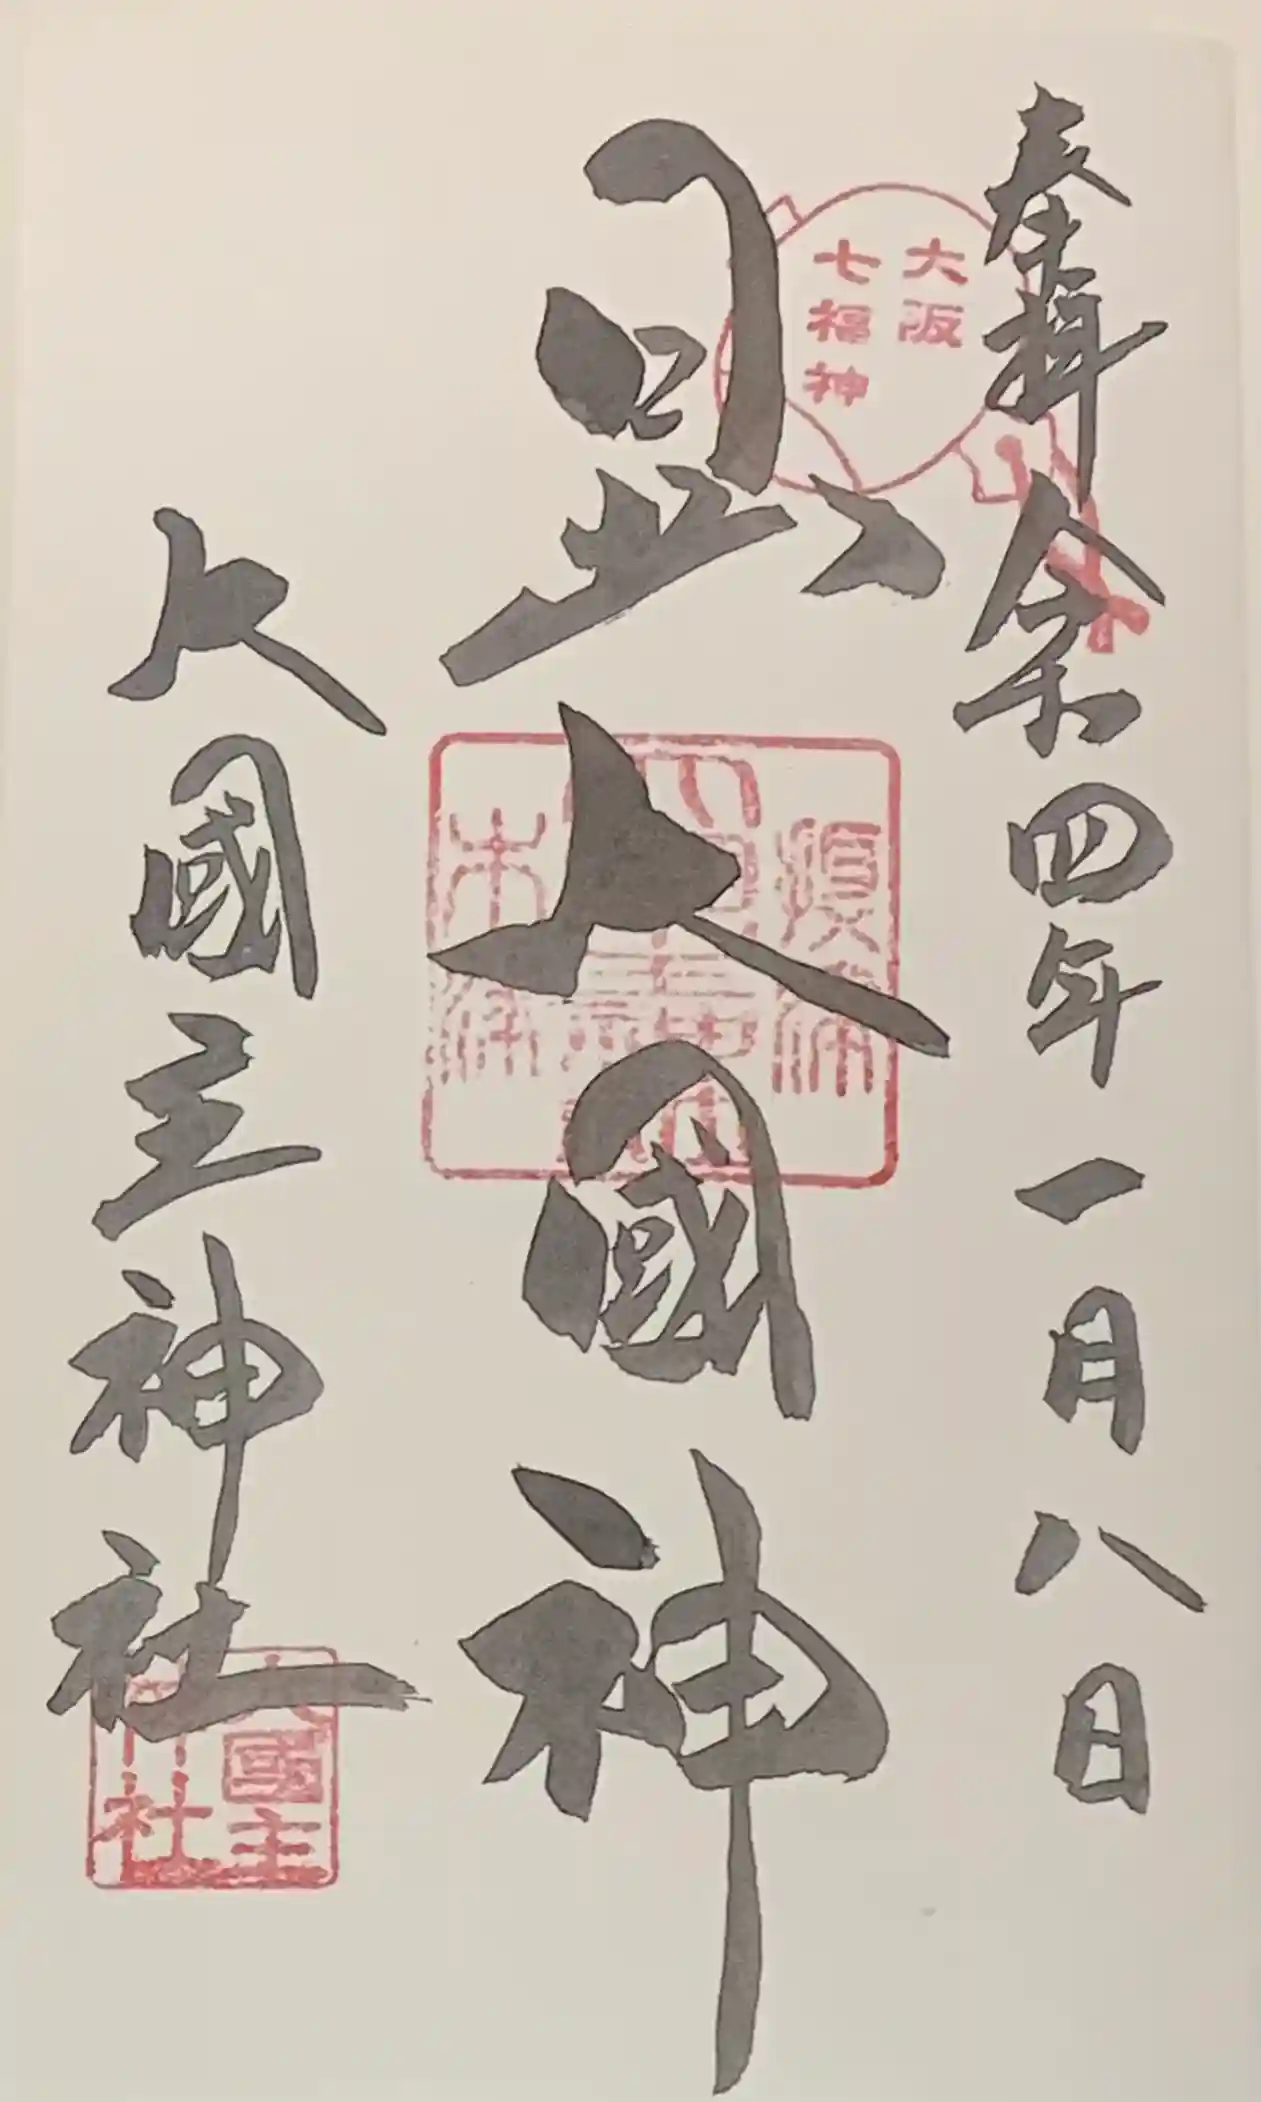 奉拝 令和四年一月八日
大阪
七福神
日出大國神
木津
大國主神社
大國主
神社